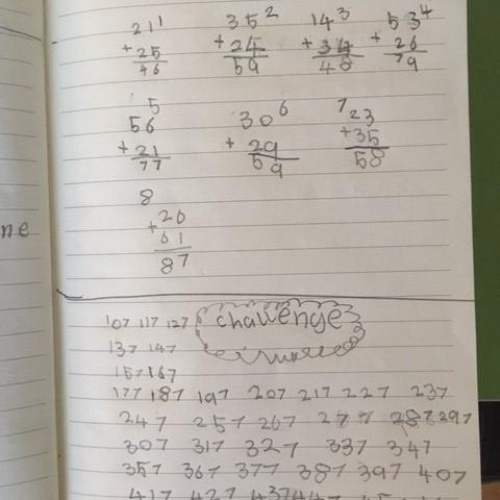 21¹ 35² 14³ 53⁴
+25 +24 +34 + 26
46 59 48 79
5 6 7
56 30 23
+21 + 29 +35
77 59 58
8
26
+61
87
ne
107 117 127 challenge
137 147
157 167
177 187 197 207 217 227 237
247 257 267 277 287 297
307 317 327 337 347
357 367 377 387 397 407
417 427 437 447